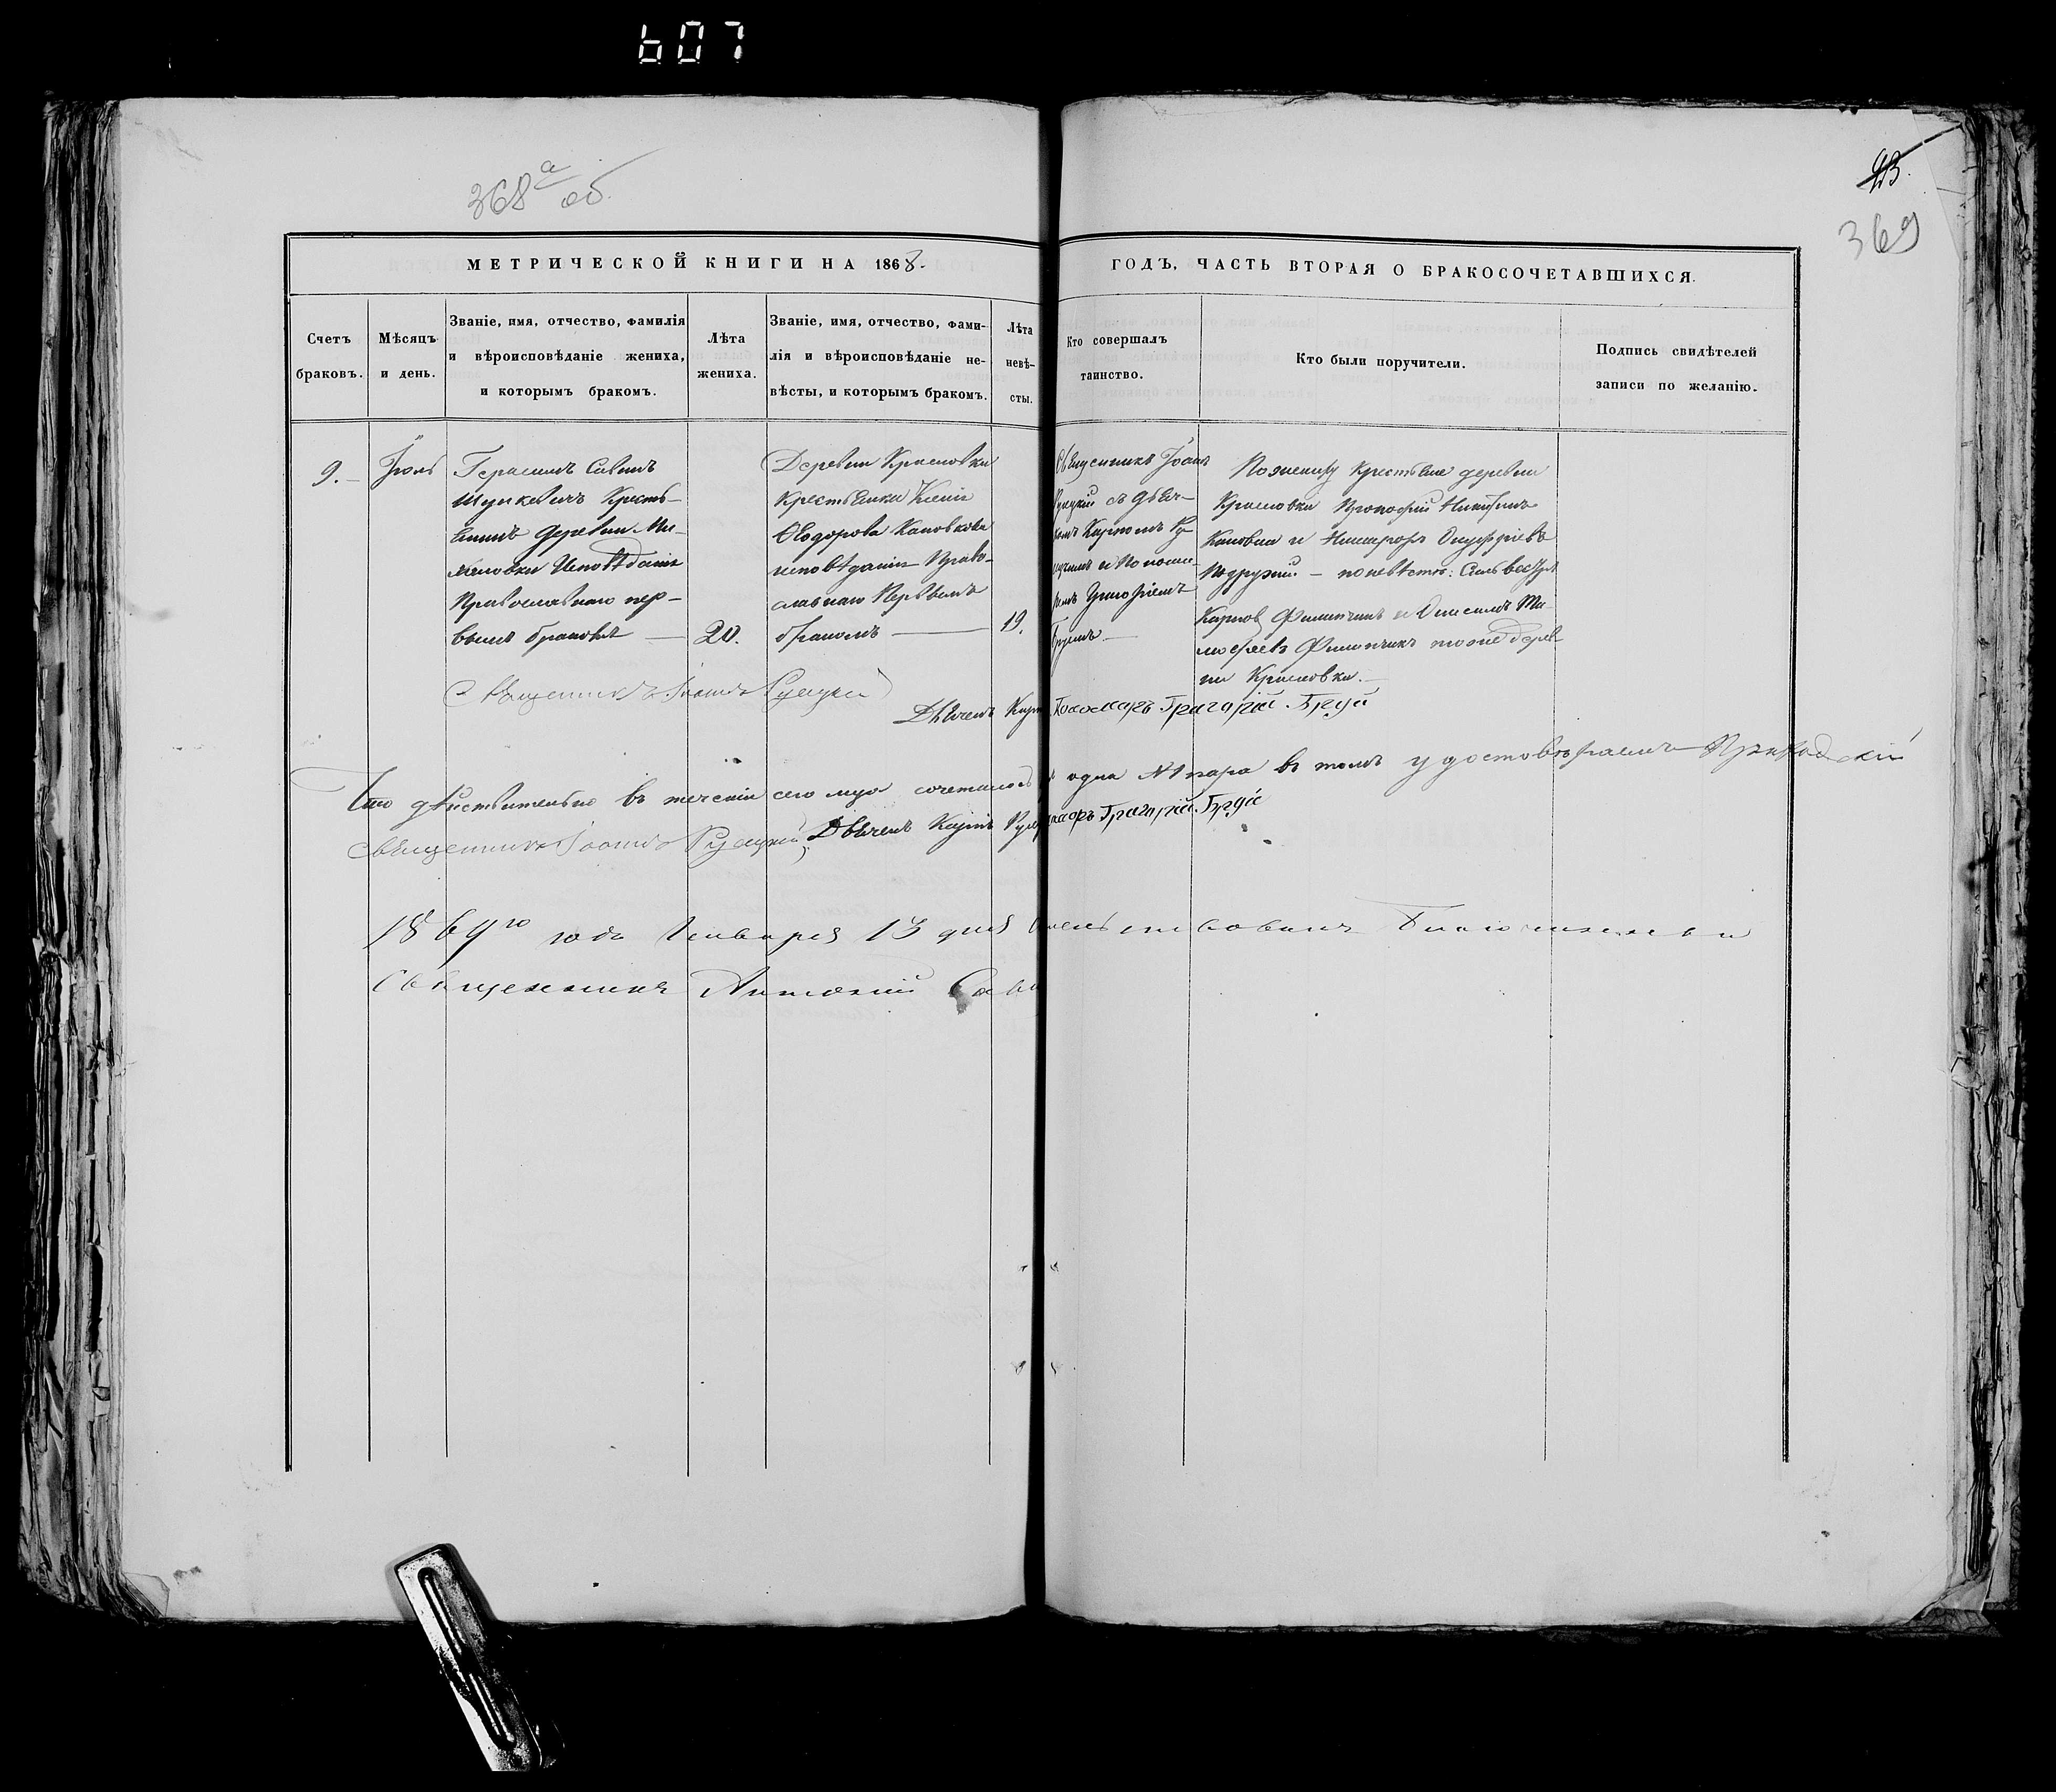 607
368 а об
23.
369
МЕТРИЧЕСКОЙ КНИГИ НА 1868.
ГОДЪ, ЧАСТЬ ВТОРАЯ О БРАКОСОЧЕТАВШИХСЯ.
Счетъ
браковъ.
Мѣсяцъ
и день.
Званіе, имя, отчество, фамилія
и вѣроисповѣданіе жениха,
и которымъ бракомъ.
Лѣта
жениха.
Званіе, имя, отчество, фами-
лія и вѣроисповѣданіе не-
вѣсты, и которымъ бракомъ.
Лѣта
невѣ-
сты.
Кто совершалъ
таинство.
Кто были поручители.
Подпись свидѣтелей
записи по желанію.
9.
Іюль
Герасимъ Савинъ
Шуркевичъ Кресть-
янинъ деревни
Исповѣданія
Православнаго пер-
вымъ бракомъ
20.
Деревни Красновки
Крестьянка
Ѳеодорова Кановкова
исповѣданія Право-
славнаго Первымъ
бракомъ
19.
Священникъ Іоаннъ
съ дьяч-
Григоріемъ
По женихѣ Крестьяне деревни
Красновки Прокофій Никитинъ
и Никифоръ Онуфріевъ
по невѣстѣ: Сильвестръ
Карповъ Филипчикъ и
Филипчикъ тоже дерев-
ни Красновки.
Священникъ Іоаннъ Руецкій
Дьячекъ
Пономарь Григорій Бруй
Что дѣйствительно въ теченіи сего мца сочеталось одна №1 пара въ томъ удостовѣряемъ Приходскій
священникъ Іоаннъ Руецкій, Дьячекъ Григорій Бруй
1869го года Января 13 дня свидѣтельствовалъ Благочинный
Священникъ Антоній